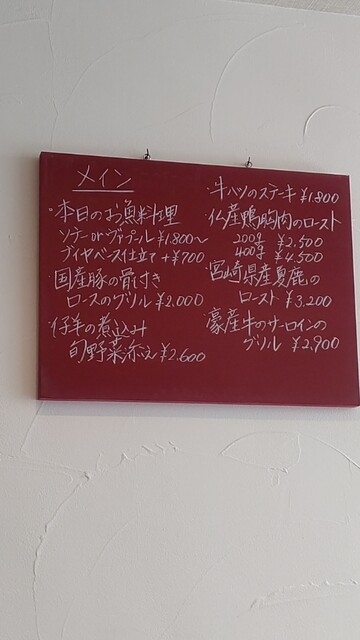 メイン
・本日のお魚料理
ソテー or ヴァプール ¥1.800〜
ブイヤベース仕立て +¥700
国産豚の骨付き
ロースのグリル ¥2.000
仔羊の煮込み
旬野菜添え ¥2.600
・牛ハツのステーキ ¥1.800
・仏産鴨胸肉のロースト
200g ¥2.500
400g ¥4.500
・宮崎県産夏鹿の
ロースト ¥3.200
・豪産牛のサーロインの
グリル ¥2,900